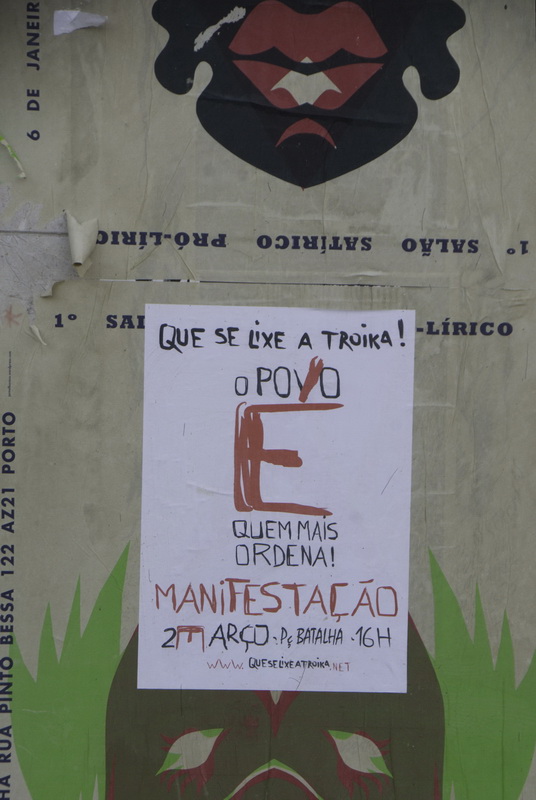 6 DE JANEIR
1º SALÃO SATÍRICO PRÓ-LÍRIC
1º SAL
-LÍRICO
QUE SE LIXE A TROIKA!
O POVO
É
QUEM MAIS
ORDENA!
MANIFESTAÇÃO
2 MARÇO · PÇ BATALHA · 16H
WWW. QUESELIXEATROIKA.NET
HA RUA PINTO BESSA 122 AZ21 PORTO